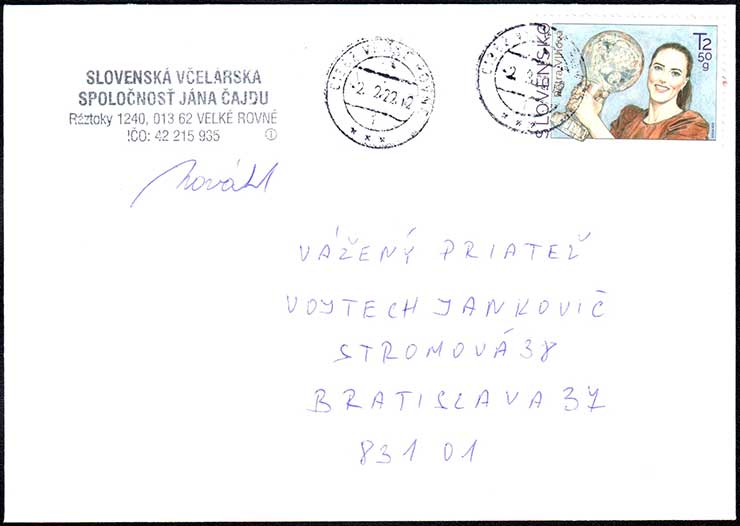 SLOVENSKÁ VČELÁRSKA
SPOLOČNOSŤ JÁNA ČAJDU
Ráztoky 1240, 013 62 VELKÉ ROVNÉ
IČO: 42 215 935 ①
-2.2.22.12
1
* * *
SLOVENSKO
T2 50g
Novák
VÁŽENÝ PRIATEĽ
VOJTECH JANKOVIČ
STROMOVÁ 38
BRATISLAVA 37
831 01